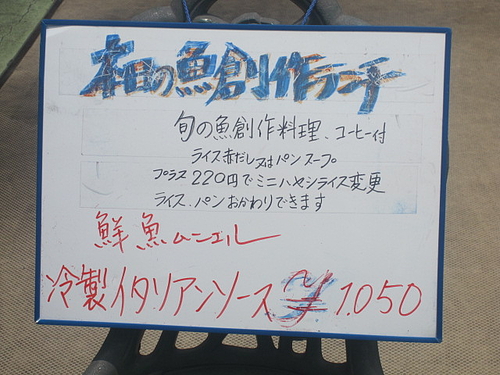 本日の魚創作ランチ
旬の魚創作料理、コーヒー付
ライス赤だし又はパンスープ
プラス220円でミニハヤシライス変更
ライス、パンおかわりできます
鮮魚ムニエル
冷製イタリアンソース ¥1.050